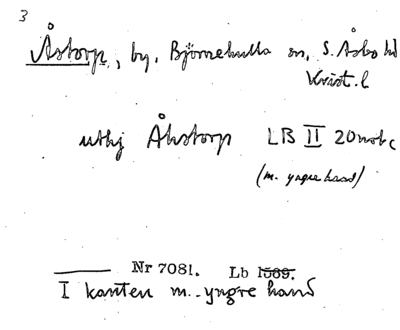 3
Åstorp, by, Björnekulla sn, S. Åsbo hd
Krist. l
uthj Åkstorp LB II 20 nob c
(m. yngre hand)
Nr 7081. Lb 1569.
I kanten m. yngre hand